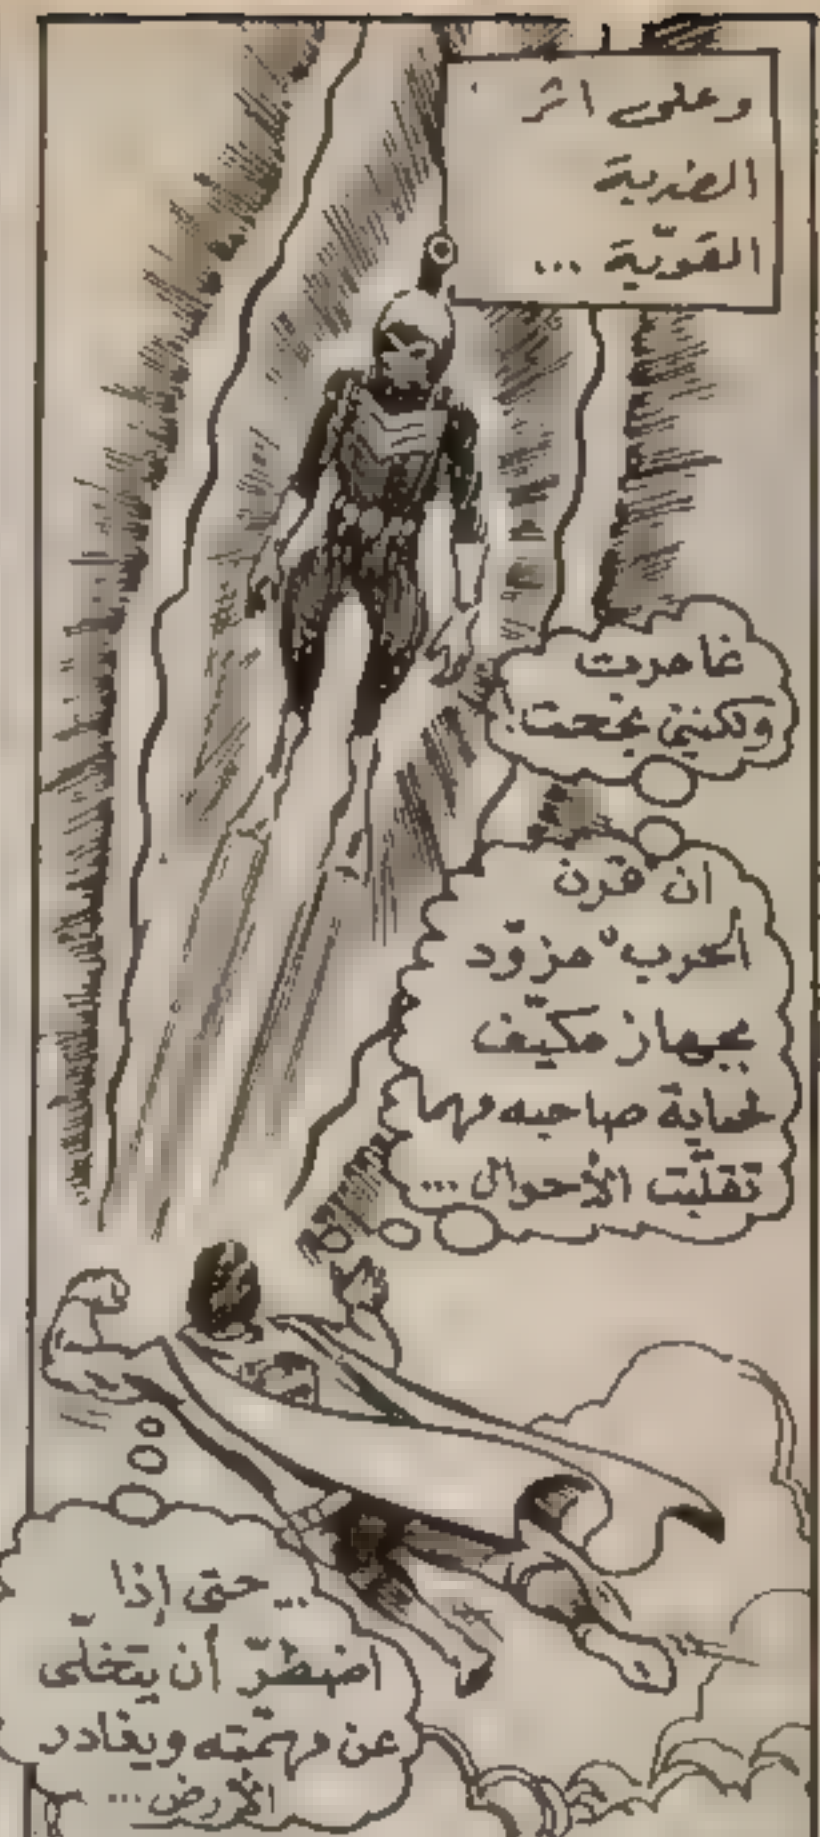 وعلى اثر
الضربة
القويّة ...
غامرت
ولكنني نجحت!
ان قرن
الحرب" مزوّد
بجهاز مكيّف
لحماية صاحبه مهما
تقلّبت الأحوال ...
... حتى إذا
اضطرّ أن يتخلّى
عن مهمّته ويغادر
الأرض ...